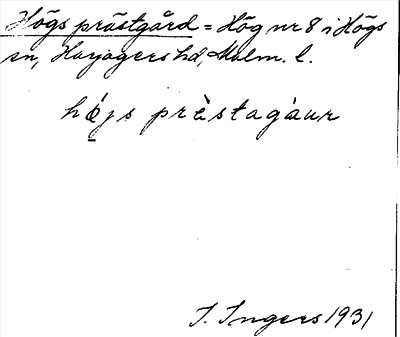 Högs prästgård = Hög nr 8 i Högs
sn, Harjagers hd, Malm. l.
hǿ̨js prèstagàur
I. Ingers 1931